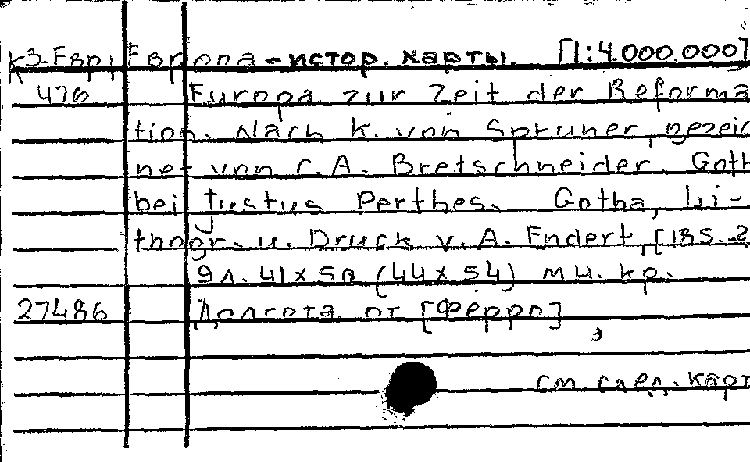 К3-Евр, Европа - истор. карты. [1:4.000.000]
476 Europa zur Zeit der Reforma
tion. Nach K. von Spruner, gezeic
net von C. A. Bretschneider. Goth
bei Justus Perthes. Gotha, Li-
thogr. u. Druck v. A. Endert, [185
9л. 41x50 (44x54) мн. кр.
27486 Долгота от [Ферро]
см. след. карт